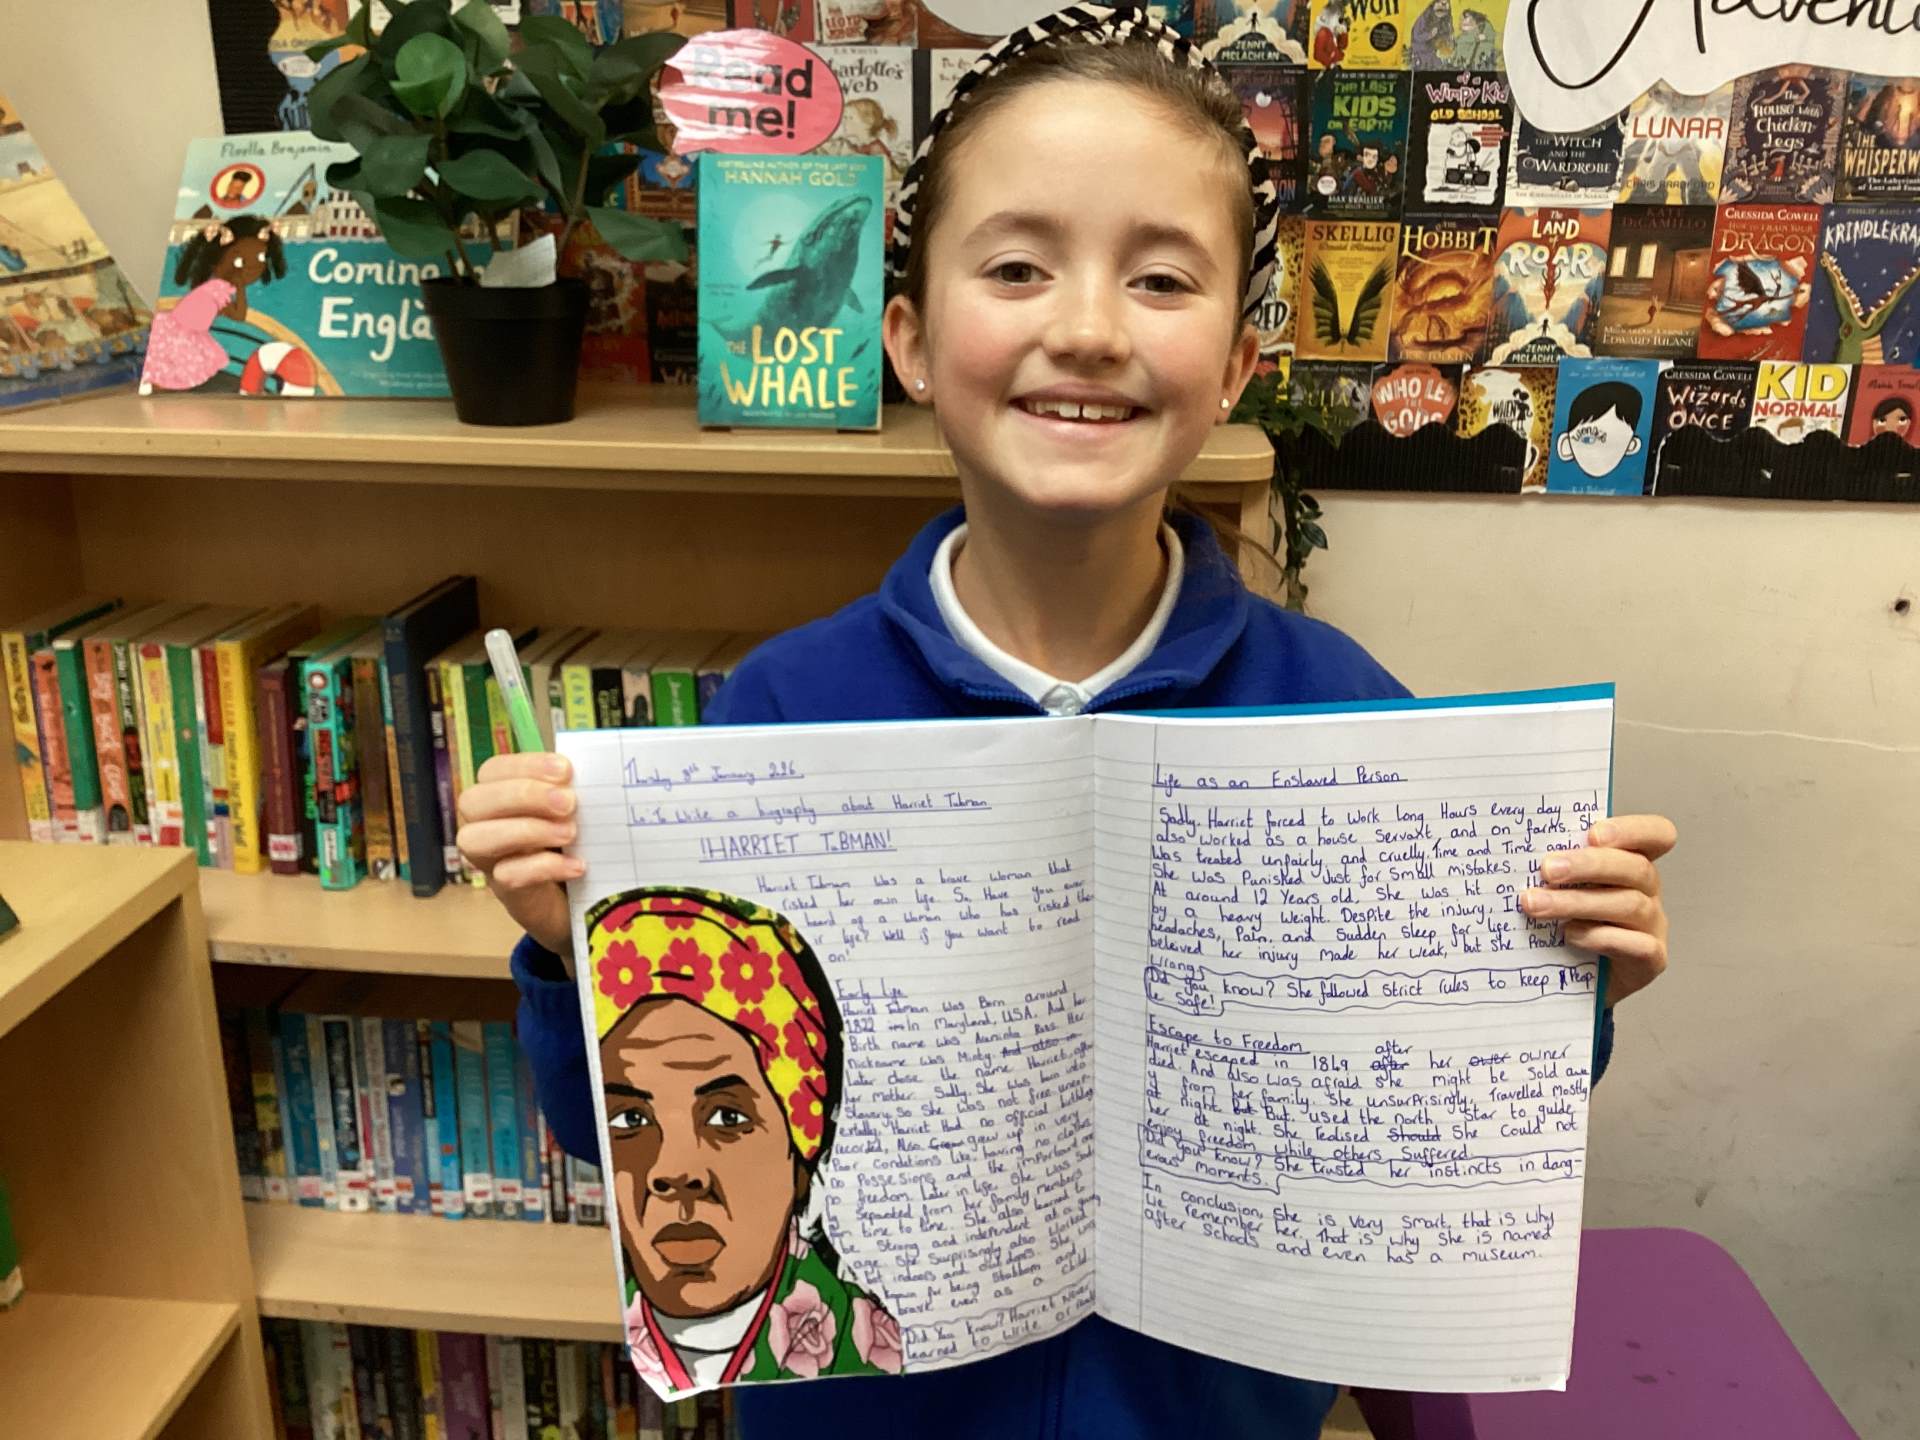 Floella Benjamin
Coming
Engla
Read
me!
HANNAH GOLD
THE LOST
WHALE
Charlotte's
Web
JENNY
MCLACHLAN
THE LAST
KIDS
ON EARTH
MAX BRALLIER
Wimpy Kid
OLD SCHOOL
THE WITCH
AND THE
WARDROBE
LUNAR
CHRIS BRADFORD
The
HOUSE With
Chicken
Legs
THE
WHISPERW
SKELLIG
David Almond
THE
HOBBIT
The
LAND
of
ROAR
JENNY
MCLACHLAN
KATE
DICAMILLO
EDWARD TULANE
CRESSIDA COWELL
HOW TO TRAIN YOUR
DRAGON
KRINDLEKRA
WHO LET
THE
GODS
WHEN
wonder
CRESSIDA COWELL
The
Wizards
of
ONCE
KID
NORMAL
Thursday 8th January 2026
Lo: To write a biography about Harriet Tubman
!HARRIET TUBMAN!
Harriet Tubman was a brave woman that
risked her own life. So, Have you ever
heard of a woman who has risked the
ir life? Well if you want to read
on!
Early Life
Harriet Tubman was Born around
1822 in Maryland, USA. And her
Birth name was Araminta Ross. Her
nickname was Minty. And also in
Later chose the name Harriet, after
her mother. Sadly, She was born into
Slavery so She was not free.
Harriet Had no official birthday
recorded, Also grew up in very
Poor conditions like having no clothes,
no Possesions and the important one
no freedom. Later in life, She was Sad
ly Separated from her family members
from time to time. She also learned to
be Strong and independent at a young
age. She Surprisingly also worked
but indoors and outdoors. She was
known for being Stubborn and
brave even as a child
Did You know? Harriet Never
learned to write or read
Life as an Enslaved Person
Sadly, Harriet forced to work long Hours every day and
also worked as a house Servant, and on farms. Sh
was treated unfairly and cruelly. Time and Time again
She was Punished Just for Small mistakes.
At around 12 Years old, She was hit on the
by a heavy weight. Despite the injury, It
headaches, Pain, and Sudden Sleep for life. Many
beleived her injury made her weak, but She Proved
wrong.
Did you know? She followed strict rules to keep Peop
le Safe!
Escape to Freedom
after
Harriet escaped in 1849 after her over owner
died. And also was afraid she might be sold awa
y from her family. She unsurprisingly, travelled Mostly
at night. But But, used the north Star to guide
her at night. She realised Should She Could not
enjoy freedom while others Suffered.
Did you know? She trusted her instincts in dang-
erous moments.
In conclusion, She is very Smart, that is why
we remember her. That is why She is named
after Schools and even has a museum.